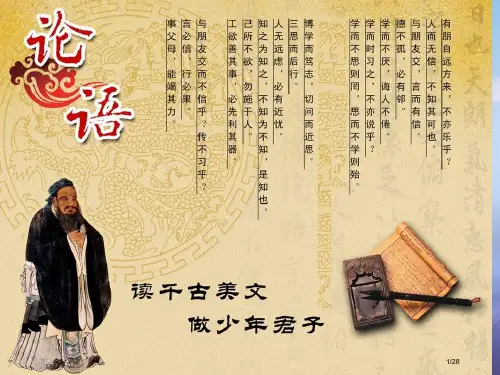 论语
有朋自远方来，不亦乐乎？
人而无信，不知其可也。
与朋友交，言而有信。
德不孤，必有邻。
学而不厌，诲人不倦。
学而时习之，不亦说乎？
学而不思则罔，思而不学则殆。
博学而笃志，切问而近思。
三思而后行。
人无远虑，必有近忧。
知之为知之，不知为不知，是知也。
己所不欲，勿施于人。
工欲善其事，必先利其器。
与朋友交而不信乎？传不习乎？
言必信，行必果。
事父母，能竭其力。
读千古美文
做少年君子
1/28